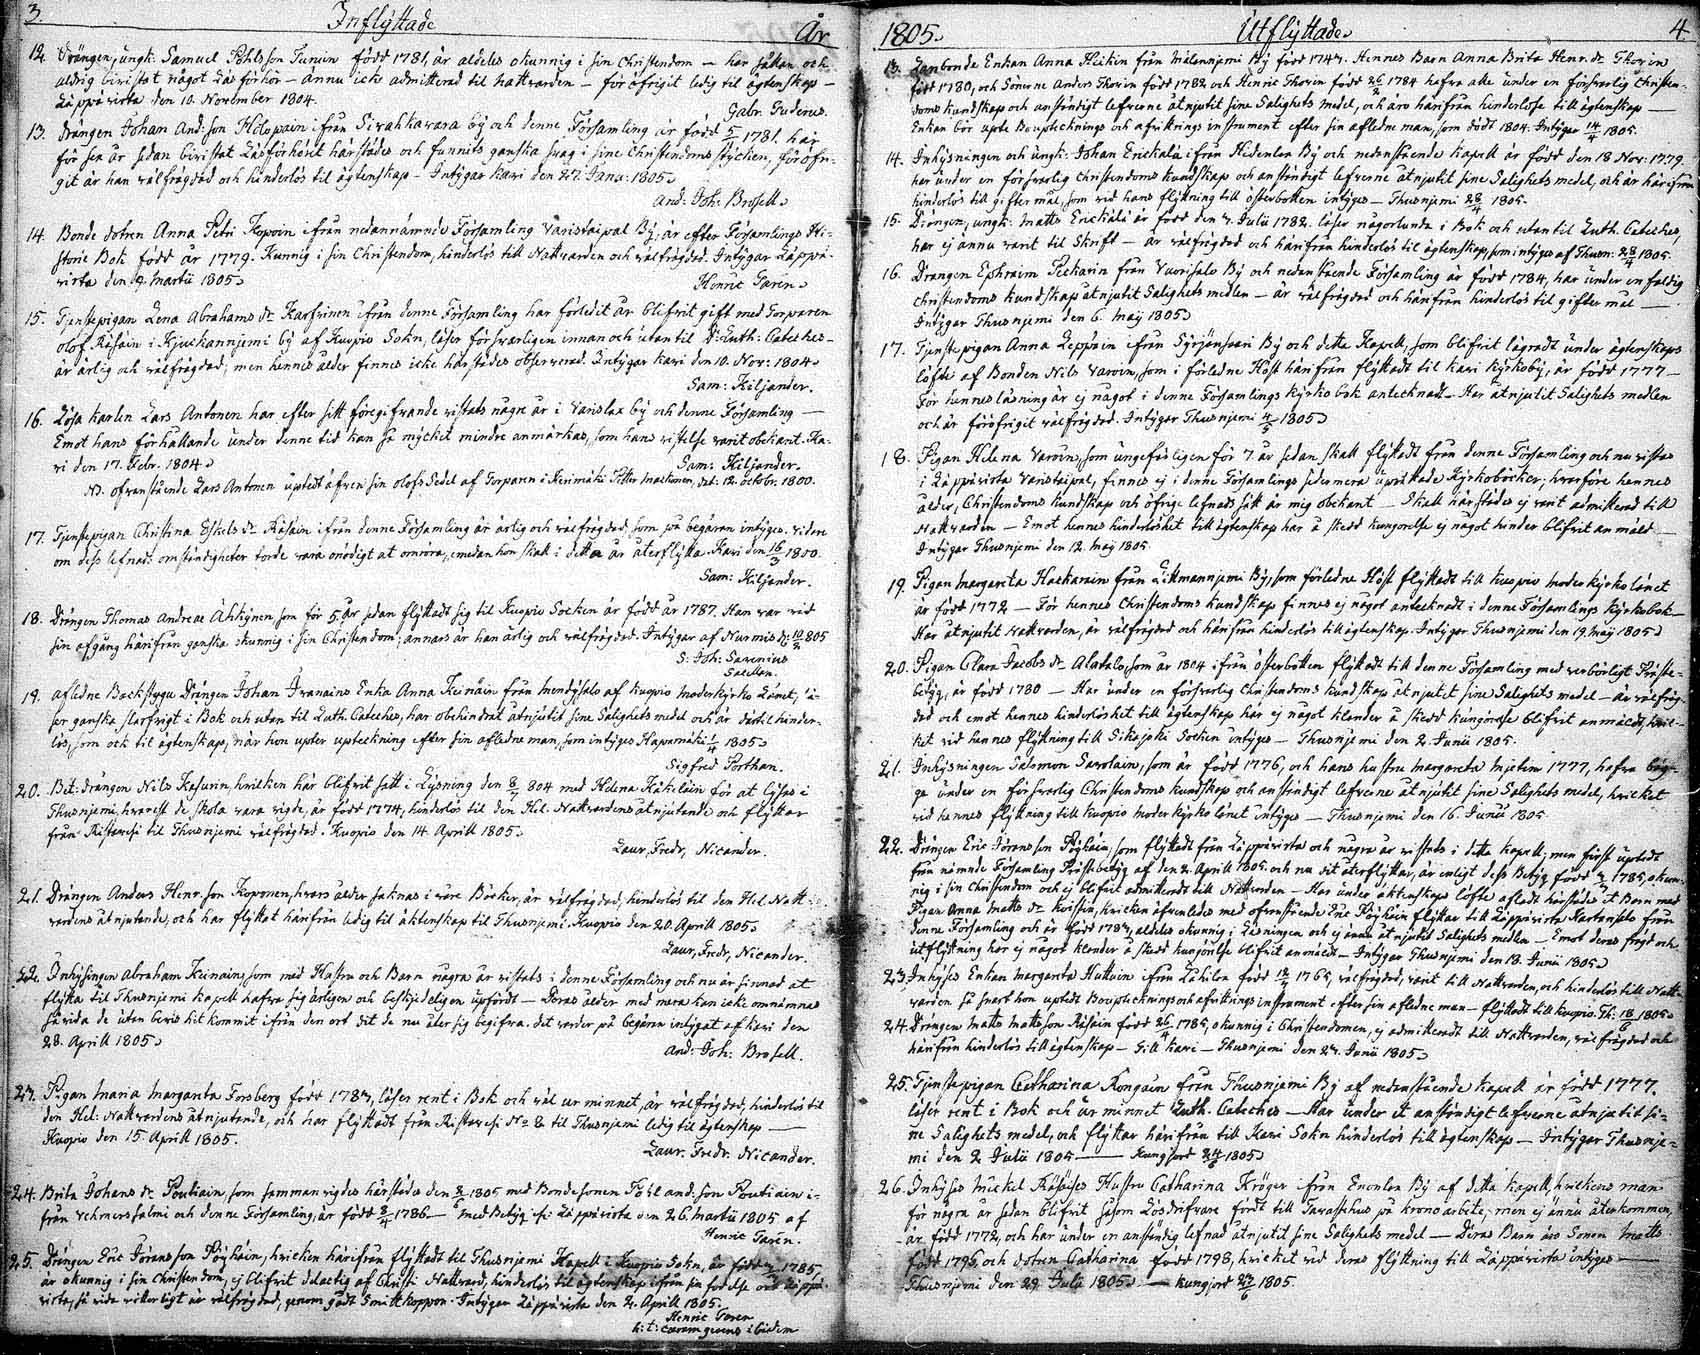 3. Inflyttade År
12. Drängen, ungk: Samuel Påhlsson Turuin född 1781, är aldeles okunnig i sin Christendom — har sällan och
aldrig bivistat något Läsförhör — ännu icke admitterad til nattvarden — föröfrigit ledig til ägtenskap —
Läppävirta den 10. November 1804.
Gabr. Fuderus.
13. Drängen Johan And:son Holopain ifrån Sivakkavara by och denne Församling är född 1781. har
för sex år sedan bivistat Läsförhöret härstädes och funnits ganska svag i sine Christendoms stycken, föröfri-
git är han välfrägdad och hinderlös til ägtenskap — Intygar Kavi den 27. Janu: 1805.
And: Joh: Brofell.
14. Bonde dotren Anna Petri Kopoin ifrån nedannämnde Församling Varistaipal By, är efter Församlings Hi-
storie Bok född år 1779. Kunnig i sin Christendom, hinderlös till Nattvarden och välfrägdad. Intygar Läppä-
virta den 9. Martii 1805.
Henric Faren.
15. Tjenstepigan Lena Abrahams dr Karhinen ifrån denne Församling har förledit år blifvit gift med Torparen
Olof Räsäin i Kjuckanniemi by af Kuopio Sokn, läser försvarligen innan och utan til Dr Luth: Cateches —
är ärlig och välfrägdad, men hennes ålder finnes icke härstädes observerad. Intygar Kavi den 10. Nov: 1804.
Sam: Kiljander.
16. Lösa karlen Lars Antonen har efter sitt föregifvande vistats någre år i Varislax by och denne Församling —
Emot hans förhållande under denne tid kan så mycket mindre anmärkas, som hans vistelse varit obekant. Ka-
vi den 17. Febr. 1804.
Sam: Kiljander.
NB. ofvanstående Lars Antonen uptedt äfven sin olofs Sedel af Torparen i Kerimäki Petter Martionen, dat: 12. octobr. 1800.
17. Tjenstepigan Christina Eskels dr Räsäin ifrån denne Församling är ärlig och välfrägdad, som på begäran intygas. vidare
om dess lefnads omständigheter torde vara onödigt at omröra, emedan hon skall i detta år återflytta. Kavi den 16/3 1800.
Sam: Kiljander.
18. Drängen Thomas Andreae Ähkynen, som för 5. år sedan flyttadt sig til Kuopio Socken är född år 1787. Han var vid
sin afgång härifrån ganska okunnig i sin Christendom; annars är han ärlig och välfrägdad. Intygar af Nurmis d: 805
S: Joh: Savenius
Sacellan.
19. afledne Backstugu Drängen Johan Ivanains Enka Anna Keinäin från Mendysalo af Kuopio Moderkyrko Länet, lä-
ser ganska slarfvigt i Bok och utan til Luth. Cateches, har obehindrat åtnjutit sine Salighets medel och är därtil hinder-
lös, som ock til ägtenskap, när hon upter upteckning efter sin afledne man, som intygas Hapamäki 1/4 1805.
Sigfred Porthan.
20. Bet: drängen Nils Kasurin hvilken här blifvit satt i Lysning den 804 med Helena Käkeläin för at Lysas i
Thusnjemi, hvarest de skola vara vigde, är född 1774, hinderlös til den Hel. Nattvardens åtnjutande och flyttar
från Ristavesi til Thusnjemi välfrägdad. Kuopio den 14. Aprill 1805.
Laur. Fredr. Nicander.
21. Drängen Anders Henr.son Koponen, hvars ålder saknas i våre Böcker, är välfrägdad, hinderlös til den Hel. Natt-
vardens åtnjutande, och har flyttat härifrån ledig til äktenskap til Thusnjemi. Kuopio den 20. Aprill 1805.
Laur. Fredr. Nicander.
22. Inhysingen Abraham Keinain, som med Hustru och Barn några år vistats i denne Församling och nu är sinnad at
flytta til Thusnjemi kapell hafva sig ärligen och beskjedeligen upfördt — Deras ålder med mera kan icke omnämnas
såvida de utan bevis hit kommit ifrån den ort dit de nu åter sig begifva. det varder på begäran intygat af Kavi den
28. Aprill 1805.
And: Joh: Brofell.
23. Pigan Maria Margareta Forsberg född 1787, läser rent i Bok och väl ur minnet, är välfrägdad, hinderlös til
den Hel: Nattvardens åtnjutande, och har flyttadt från Ristavesi No 8 til Thusnjemi ledig til ägtenskap —
Kuopio den 15. Aprill 1805.
Laur. Fredr. Nicander.
24. Brita Johans dr Poutiain, som samman vigdes härstädes den 1805 med Bondesonen Påhl And:son Poutiain i-
från Vehmersalmi och denne Församling, är född 1786 — med Betyg ifr: Läppävirta den 26. Martii 1805 af
Henric Faren.
25. Drängen Eric Jöransson Pöyhäin, hvilken härifrån flyttadt til Thusnjemi Kapell i Kuopio Sokn, är född 1785
är okunnig i sin Christendom, ej blifvit delactig af Christi Nattvard, hinderlös til ägtenskap ifrån sin födelse ort Läppä-
virta, så vida vitterligt är välfrägdad, genom gådt Smittkoppor. Intygar Läppävirta den 2. Aprill 1805.
Henric Faren
1805. Utflyttade. 4.
13. Landbonde Enkan Anna Heikin från Målannjemi By född 1747. Hennes Barn Anna Brita Henr. dr Thorin
född 1780, och Sönerne Anders Thorin född 1782 och Henric Thorin född 1784 hafva alle under en försvarlig Christen-
doms kundskap och anständigt lefverne åtnjutit sine Salighets medel, och äro härifrån hinderlöse till ägtenskap —
Enkan bör upte Bouptecknings och afvittrings instrument efter sin afledne man, som dödt 1804. Intygar 14/4 1805.
14. Inhysningen och ungk: Johan Erickälä ifrån Hidenlen By och nedanstående kapell är född den 18 Nov: 1779.
har under en försvarlig Christendoms kundskap och anständigt lefverne åtnjutit sine Salighets medel, och är härifrån
hinderlös till giftermål, som vid hans flyttning till österbotten intyges — Thusnjemi 28/4 1805.
15. Drängen, ungk: Matts Erickälä är född den 7. Julii 1782. läser någorlunda i Bok och utantil Luth. Cateches,
har ej ännu varit til Skrift — är välfrägdad och härifrån hinderlös til ägtenskap, som intyges af Thusn: 28/4 1805.
16. Drängen Ephraim Peckarin från Vuorisalo By och nedanstående Församling är född 1784, har under en faldig
christendoms kundskap åtnjutit Salighets medlen — är välfrägdad och härifrån hinderlös til giftermål —
Intygar Thusnjemi den 6. Maij 1805.
17. Tjenstepigan Anna Leppäin ifrån Syrjänsari By och detta Kapell, som blifvit lägradt under ägtenskaps
löfte af Bonden Nils Varoin, som i förledne Höst härifrån flyttadt til Kavi Kyrkoby, är född 1777 —
För hennes läsning är ej något i denne Församlings kyrko bok antecknadt — Har åtnjutit Salighets medlen
och är föröfrigit välfrägdad. Intygar Thusnjemi 4/5 1805.
18. Pigan Helena Varoin, som ungefärligen för 7 år sedan skall flyttadt från denne Församling och nu vistas
i Läppävirta Varistaipal, finnes ej i denne Församlings sidermera uprättade Kyrkoböcker, hvarföre hennes
ålder, Christendoms kundskap och öfrige lefnads sätt är mig obekant — Skall härstädes ej varit admitterad till
Nattvarden — Emot hennes hinderlöshet till ägtenskap har å skedd kungörelse ej något hinder blifvit anmäld —
Intygar Thusnjemi den 12. Maij 1805.
19. Pigan Margareta Hackarain från Littmannjemi By, som förledne Höst flyttadt till Kuopio moder kyrko länet
är född 1772 — För hennes Christendoms kundskap finnes ej något antecknadt i denne Församlings kyrkobok —
Har åtnjutit Nattvarden, är välfrägdad och härifrån hinderlös till ägtenskap. Intygar Thusnjemi den 19. Maij 1805.
20. Pigan Clara Jacobs dr Alatalo, som år 1804 ifrån österbotten flyttadt till denne Församling med verbörligt Präste-
betyg, är född 1780 — Har under en försvarlig Christendoms kundskap åtnjutit sine Salighets medel — är välfräg-
dad och emot hennes hinderlöshet till ägtenskap har ej något klander å skedd kungörelse blifvit anmäldt, hvil-
ket vid hennes flyttning till Sikajoki Socken intyges — Thusnjemi den 2. Junii 1805.
21. Inhysningen Salomon Savolain, som är född 1776, och hans hustru Margareta Mjetin 1777, hafva bäg-
ge under en försvarlig Christendoms kundskap och anständigt lefverne åtnjutit sine Salighets medel, hvilket
vid hennes flyttning till Kuopio moder kyrko länet intyges — Thusnjemi den 16. Junii 1805.
22. Drängen Eric Jöransson Pöyhäin, som flyttadt från Läppävirta och några år vistats i detta kapell, men först uptedt
från nämnde Församling Prästbetyg af den 2. Aprill 1805. och nu dit återflyttar, är enligt dess Betyg född 1785, okun-
nig i sin Christendom och ej blifvit admitteradt till Nattvarden — Har under äktenskaps löfte afladt härstädes et Barn med
Pigan Anna Matts dr Kvistin, hvilken äfvenledes med ofvanstående Eric Pöyhäin flyttar till Läppävirta Kartansalo från
denne Församling och är född 1787, aldeles okunnig i Läsningen och ej ännu åtnjutit Salighets medlen — Emot deras frägd och
utflyttning har ej något klander å skedd kungörelse blifvit anmäldt — Intygar Thusnjemi den 18. Junii 1805.
23. Inhyses Enkan Margareta Huttuin ifrån född 1765, välfrägdad, varit till Nattvarden, och hinderlös till Natt-
varden så snart hon uptedt Bouptecknings och afvittrings instrument efter sin afledne man — flyttadt till Kuopio. Th: 18/6 1805.
24. Drängen Matts Mattsson Räsäin född 1785, okunnig i Christendomen, ej admitteradt till Nattvarden, välfrägdad och
härifrån hinderlös till ägtenskap — till Kavi — Thusnjemi den 27. Junii 1805.
25. Tjenstepigan Catharina Kongäin från Thusnjemi By af nedanstående kapell är född 1777.
läser rent i Bok och ur minnet Luth. Cateches — Har under et anständigt lefverne åtnjutit si-
ne Salighets medel, och flyttar härifrån till Kavi Sokn hinderlös till ägtenskap — Intygar Thusnje-
mi den 2 Julii 1805 — Kungjord 24/6 1805.
26. Inhyses Mickel Räsäises Hustru Catharina Kröger ifrån Enonlen By af detta kapell, hvilkens man
för några år sedan blifvit såsom Lösdrifvare fördt till Tavastehus på krono arbete, men ej ännu återkommen,
är född 1772, och har under en anständig lefnad åtnjutit sine Salighets medel — Deras Barn äro Sonen Matts
född 1795, och dotren Catharina född 1798, hvilket vid deras flyttning till Läppävirta intyges —
Thusnjemi den 29 Julii 1805. — Kungjord 1805.